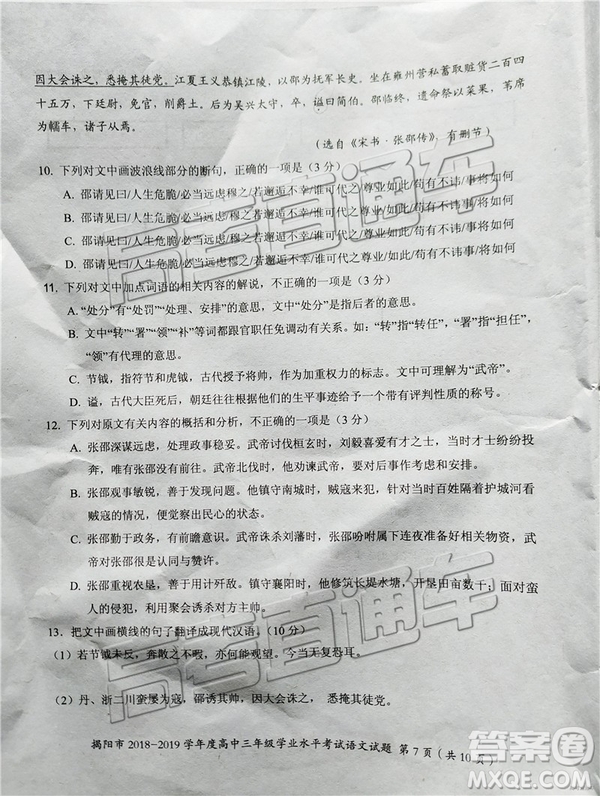 因大会诛之，悉掩其徒党。江夏王义恭镇江陵，以邵为抚军长史。坐在雍州营私蓄取赃货二百四
十五万，下廷尉，免官，削爵土。后为吴兴太守，卒，追复爵邑，谥曰简伯。邵临终，遗命祭以菜果，苇席
为轜车，诸子从焉。
（选自《宋书·张邵传》，有删节）
10. 下列对文中画波浪线部分的断句，正确的一项是（3 分）
A. 邵请见曰/人生危脆/必当远虑穆之/若邂逅不幸/谁可代之/尊业如此/苟有不讳/事将如何
B. 邵请见曰/人生危脆/必当远虑/穆之若邂逅不幸/谁可代之/尊业如此/苟有不讳/事将如何
C. 邵请见曰/人生危脆/必当远虑/穆之若邂逅不幸/谁可代之/尊业如此/苟有不讳事/将如何
D. 邵请见曰/人生危脆/必当远虑穆之/若邂逅不幸/谁可代之/尊业如此/苟有不讳事/将如何
11. 下列对文中加点词语的相关内容的解说，不正确的一项是（3 分）
A. “处分”有“处罚”与“处理、安排”的意思，文中是指后者的意思。
B. 文中“转”“署”“领”“补”等词都跟官职任免调动有关系。如：“转”指“转任”，“署”指“担任”，
“领”有代理的意思。
C. 节钺，指符节和虎钺，古代授予将帅，作为加重权力的标志。文中使用这个意思。
D. 谥，古代大臣死后，朝廷根据他们的生平事迹给予一个带有评判性质的称号。
12. 下列对原文有关内容的概括和分析，不正确的一项是（3 分）
A. 张邵深谋远虑，处事稳妥。武帝讨伐桓玄时，刘毅喜爱有才之士，当时的人士纷纷投
奔，唯有他不去投奔。武帝北伐时，他劝谏武帝要考虑对身后事的安排。
B. 张邵遇事敏锐，善于观察。他镇守南城时，贼寇来犯，看到当时百姓隔着护城河看
贼寇的情形，便觉察出民心的状态。
C. 张邵处事冷静，有前瞻意识。武帝诛杀刘藩时，张邵吩咐属下连夜准备好相关资料，武
帝对张邵很是认同与赞许。
D. 张邵政绩突出，有勇有谋。镇守襄阳时，他筑长堤水塘，开垦田亩数千；面对蛮
人的侵犯，利用聚会诱杀对方主帅。
13. 把文中画横线的句子翻译成现代汉语。（10 分）
（1）若节钺未反，奔散之不暇，亦何能复至襄阳耶。
（2）丹、浙二川蛮屡为寇，邵诱其帅，因大会诛之，悉掩其徒党。
揭阳市 2018-2019 学年度高中三年级学业水平考试语文试题 第 7 页（共 10 页）
高考直通车
高考直通车
答案圈